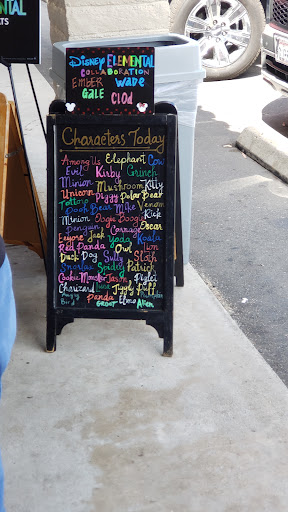 NTAL
Disney ELEMENTAL
COLLABORATION
EMBER WADE
GALE CLOD
Characters Today
Among Us Elephant Cow
Evil Kirby Grinch
Minion Mushroom Kitty
Unicorn Piggy Polar Bear
Totoro Venom
Pooh Bear Mike
Minion Oogie Boogie Rick
Penguin Carnage Oscar
Eeyore Jack Yoda Koala
Red Panda Owl
Duck Dog Sully Sloth
Snorlax Spidey Patrick
Cookie Monster Jason
Charizard Jiggly Puff
Angry Bird Panda GROOT Elmo Alien